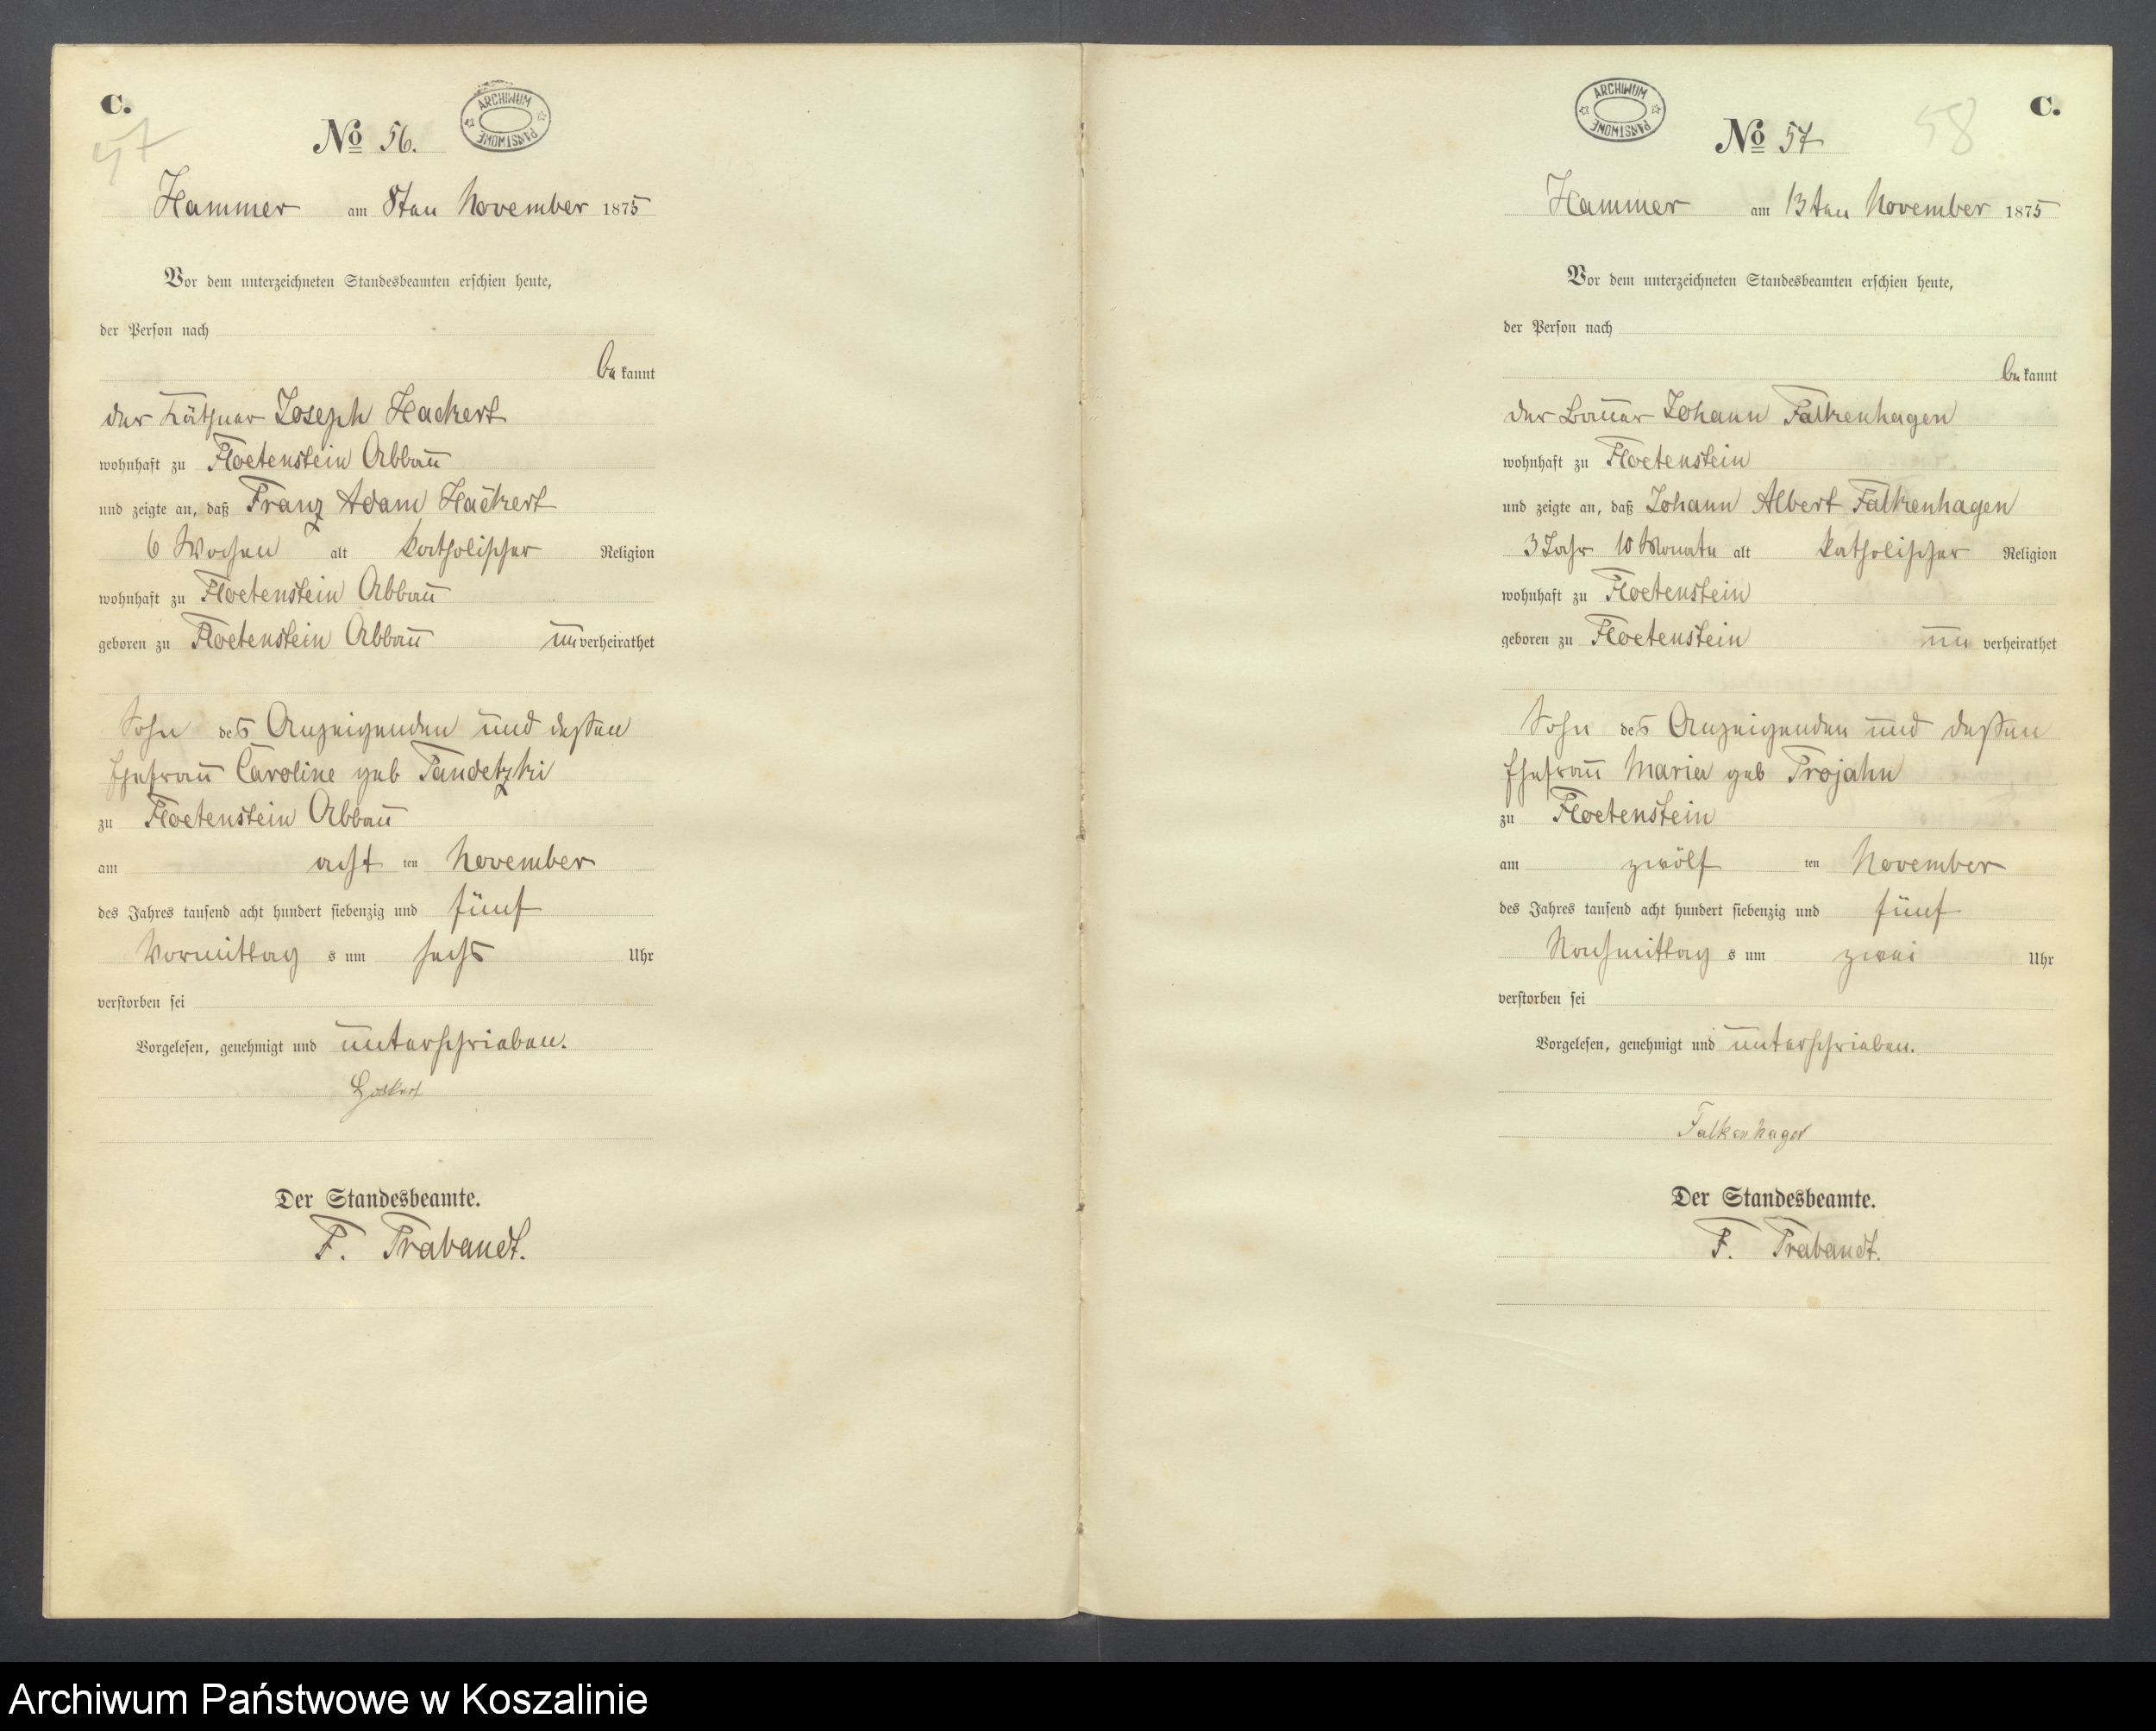 C.
57
No 56.
ARCHIWUM PAŃSTWOWE
Hammer am 8ten November 1875
Vor dem unterzeichneten Standesbeamten erschien heute,
der Person nach
be kannt
der Käthner Joseph Hackert
wohnhaft zu Floetenstein Abbau
und zeigte an, daß Franz Adam Hackert
6 Wochen alt katholischer Religion
wohnhaft zu Floetenstein Abbau
geboren zu Floetenstein Abbau un verheirathet
Sohn des Anzeigenden und dessen
Ehefrau Caroline geb Pandetzki
zu Floetenstein Abbau
am acht ten November
des Jahres tausend acht hundert siebenzig und fünf
Vormittag s um sechs Uhr
verstorben sei
Vorgelesen, genehmigt und unterschrieben.
Hackert
Der Standesbeamte.
F. Trabandt.
C.
58
No 57
ARCHIWUM PAŃSTWOWE
Hammer am 13ten November 1875
Vor dem unterzeichneten Standesbeamten erschien heute,
der Person nach
be kannt
der Bauer Johann Falkenhagen
wohnhaft zu Floetenstein
und zeigte an, daß Johann Albert Falkenhagen
3 Jahr 10 Monate alt katholischer Religion
wohnhaft zu Floetenstein
geboren zu Floetenstein un verheirathet
Sohn des Anzeigenden und dessen
Ehefrau Maria geb Trojahn
zu Floetenstein
am zwölf ten November
des Jahres tausend acht hundert siebenzig und fünf
Nachmittag s um zwei Uhr
verstorben sei
Vorgelesen, genehmigt und unterschrieben.
Falkenhagen
Der Standesbeamte.
F. Trabandt.
Archiwum Państwowe w Koszalinie